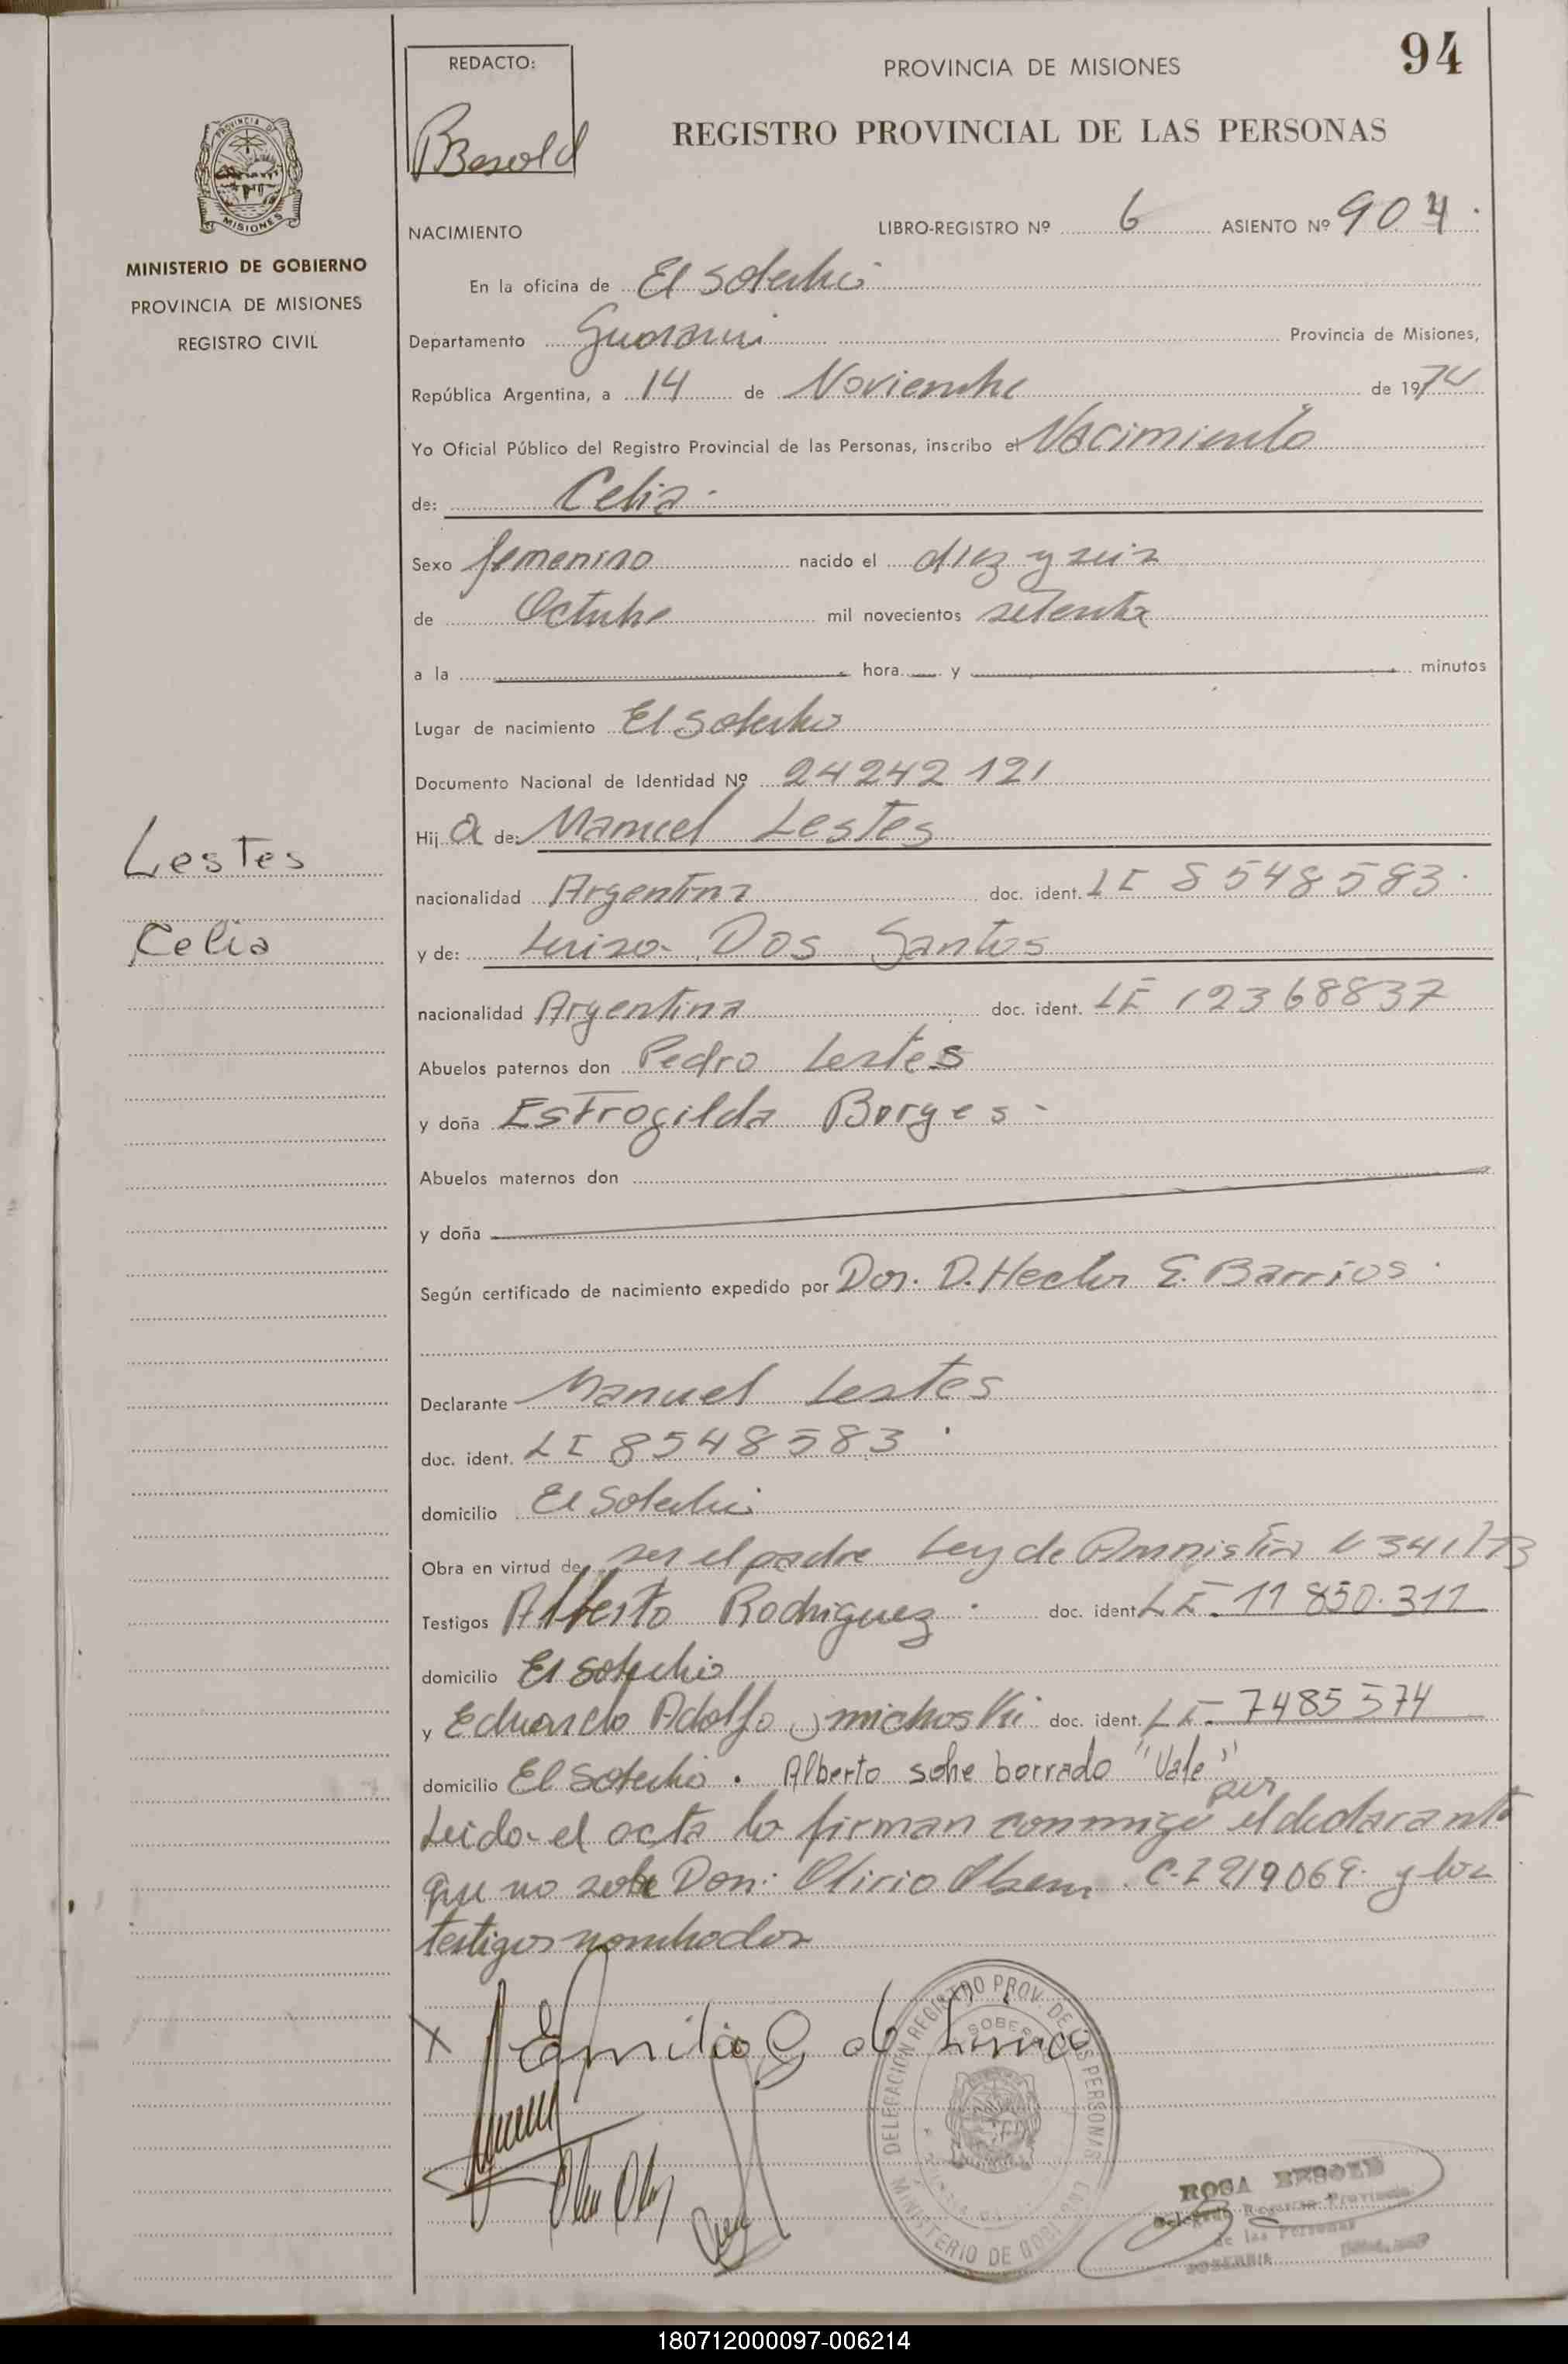 94
REDACTO:
Besold
PROVINCIA DE MISIONES
REGISTRO PROVINCIAL DE LAS PERSONAS
PROVINCIA DE
MISIONES
MINISTERIO DE GOBIERNO
PROVINCIA DE MISIONES
REGISTRO CIVIL
NACIMIENTO
LIBRO-REGISTRO Nº 6 ASIENTO Nº 904.
En la oficina de El Soberbio
Departamento Guarani Provincia de Misiones,
República Argentina, a 14 de Noviembre de 1974
Yo Oficial Público del Registro Provincial de las Personas, inscribo el Nacimiento
de: Celia.
Sexo femenino nacido el diez y seis
de Octubre mil novecientos setenta
a la hora y minutos
Lugar de nacimiento El Soberbio
Documento Nacional de Identidad Nº 24242121
Hija de: Manuel Lestes
Lestes
nacionalidad Argentina doc. ident. LE 8548583.
Celia
y de: Luisa Dos Santos
nacionalidad Argentina doc. ident. LE 12368837
Abuelos paternos don Pedro Lestes
y doña Estrogilda Borges -
Abuelos maternos don
y doña
Según certificado de nacimiento expedido por Dor. D. Hector E. Barrios.
Declarante Manuel Lestes
doc. ident. LE 8548583.
domicilio El Soberbio
Obra en virtud de ser el padre Ley de Amnistia 341/73
Testigos Alberto Rodriguez. doc. ident. LE. 11 850.311
domicilio El Soberbio
y Eduardo Adolfo doc. ident. LE. 7485574
domicilio El Soberbio. Alberto sobre borrado "Vale"
Leida el acta la firman conmigo por el declarante
que no sabe Don: Olirio Olsem C.I 219069. y los
testigos nombrados
X Emilio G de Lima
DELEGACION REGISTRO PROV. DE LAS PERSONAS
MINISTERIO DE GOBIERNO
ROSA BESOLD
de las Personas
180712000097-006214